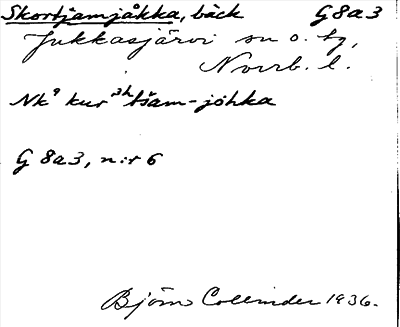 Skortjamjåkka, bäck G8a3
Jukkasjärvi sn o. tg,
Norrb. l.
Nk⁹ kur ʒh tšam-jóhka
G 8a3, n:r 6
Björn Collinder 1936.